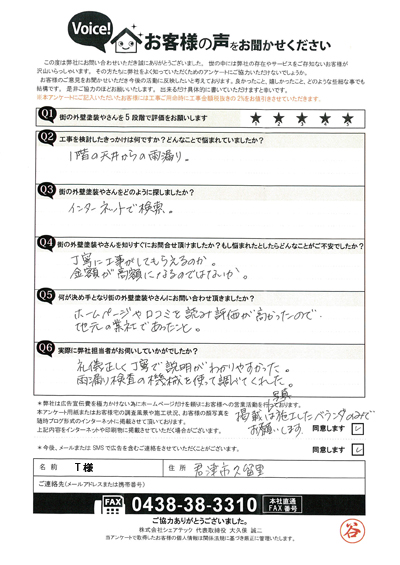 Voice!
お客様の声をお聞かせください
この度は弊社にお問い合わせいただき誠にありがとうございました。世の中には弊社の存在やサービスをご存知ないお客様が
沢山いらっしゃいます。その方たちに弊社をよく知っていただくためのアンケートにご協力いただけないでしょうか。
お客様のご意見をお聞かせいただき今後の活動に反映したいと考えております。良かったこと、嬉しかったこと、どのような些細な事でも
結構です。是非ご協力のほどお願いいたします。出来るだけ具体的に書いていただけますと幸いです。
※本アンケートにご記入いただいたお客様には工事ご所命時に工事金額税抜きの2%をお値引きさせていただきます。
Q1 街の外壁塗装やさんを5段階で評価をお願いします ★ ★ ★ ★ ★
Q2 工事を検討したきっかけは何ですか?どんなことで悩まれていましたか?
1階の天井からの雨漏り。
Q3 街の外壁塗装やさんをどのように探しましたか?
インターネットで検索。
Q4 街の外壁塗装やさんを知りすぐにお問合せ頂けましたか?もし悩まれたとしたらどんなことがご不安でしたか?
丁寧に工事がしてもらえるのか。
金額が高額になるのではないか。
Q5 何が決め手となり街の外壁塗装やさんにお問い合わせ頂きましたか?
ホームページや口コミを読み評価が高かったので
地元の業社であったこと。
Q6 実際に弊社担当者がお伺いしていかがでしたか?
礼儀正しく丁寧で説明がわかりやすかった。
雨漏り検査の機械を使って調べてくれた。
※弊社は広告宣伝費を極力かけない為にホームページだけを頼りにお客様への営業活動を行っております。
本アンケート用紙またはお客様宅の調査風景や施工状況、お客様の顔写真を
随時ブログ形式のインターネットに掲載させて頂いております。
上記内容をインターネットや印刷物に掲載させていただく場合がございます。
写真
掲載は施工したベランダのみで
お願いします。
同意します
※今後、メールまたはSMSで広告を含むご連絡をさせていただくことがございます。 同意します
名前 T様 住所 君津市久留里
ご連絡先(メールアドレスまたは携帯番号)
FAX 0438-38-3310 本社直通
FAX番号
ご協力ありがとうございました。
株式会社シェアテック 代表取締役 大久保 誠二
当アンケートで取得したお客様の個人情報は関係法規に基づき厳正に管理いたします。
谷